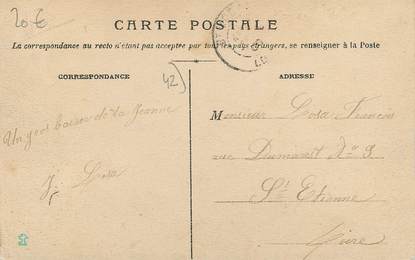 20 €
CARTE POSTALE
La correspondance au recto n'étant pas acceptée par tous les pays étrangers, se renseigner à la Poste
CORRESPONDANCE
42
ADRESSE
Un gros baiser de ta Jeanne
J. Losa
Monsieur Losa Francis
rue Dumarest N° 9
St Etienne
Loire